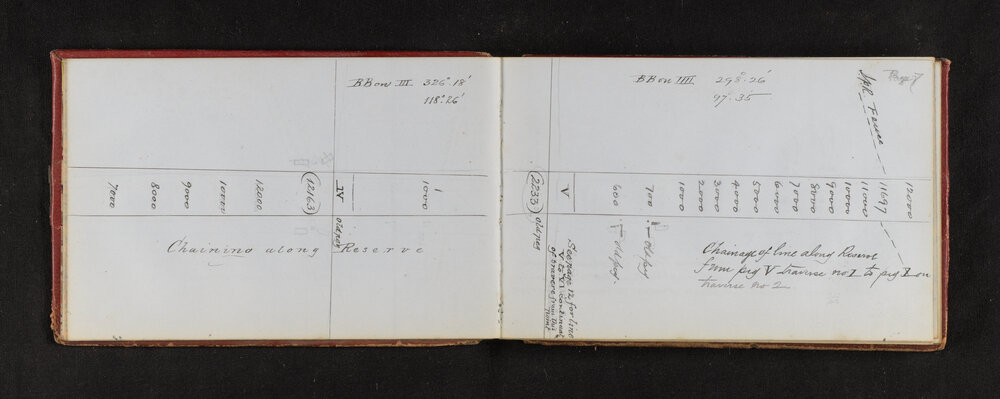 BB on III 326° 18'
118° 26'
7000
8000
9000
10000
12000
12163
IV
old peg
1000
Chaining along Reserve
BB on IIII 298° 26'
97. 35
Page 7
Fence
2233
old peg
V
600
700
1000
2000
3000
4000
5000
6000
7000
8000
9000
10000
11000
11697
12000
old peg
old peg
See page 12 for line
V to VI continued
of traverse from this
Point
Chainage of line along Reserve
from peg V traverse no I to peg I on
traverse no 2